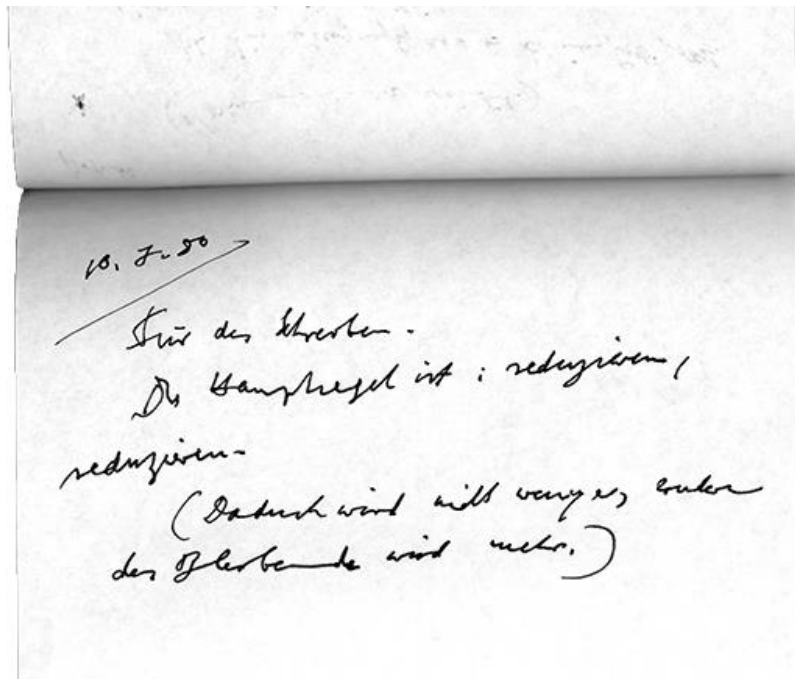 Für das Schreiben.
Die Hauptregel ist: reduzieren,
reduzieren.
(Dadurch wird nicht weniger, sondern
das Bleibende wird mehr.)